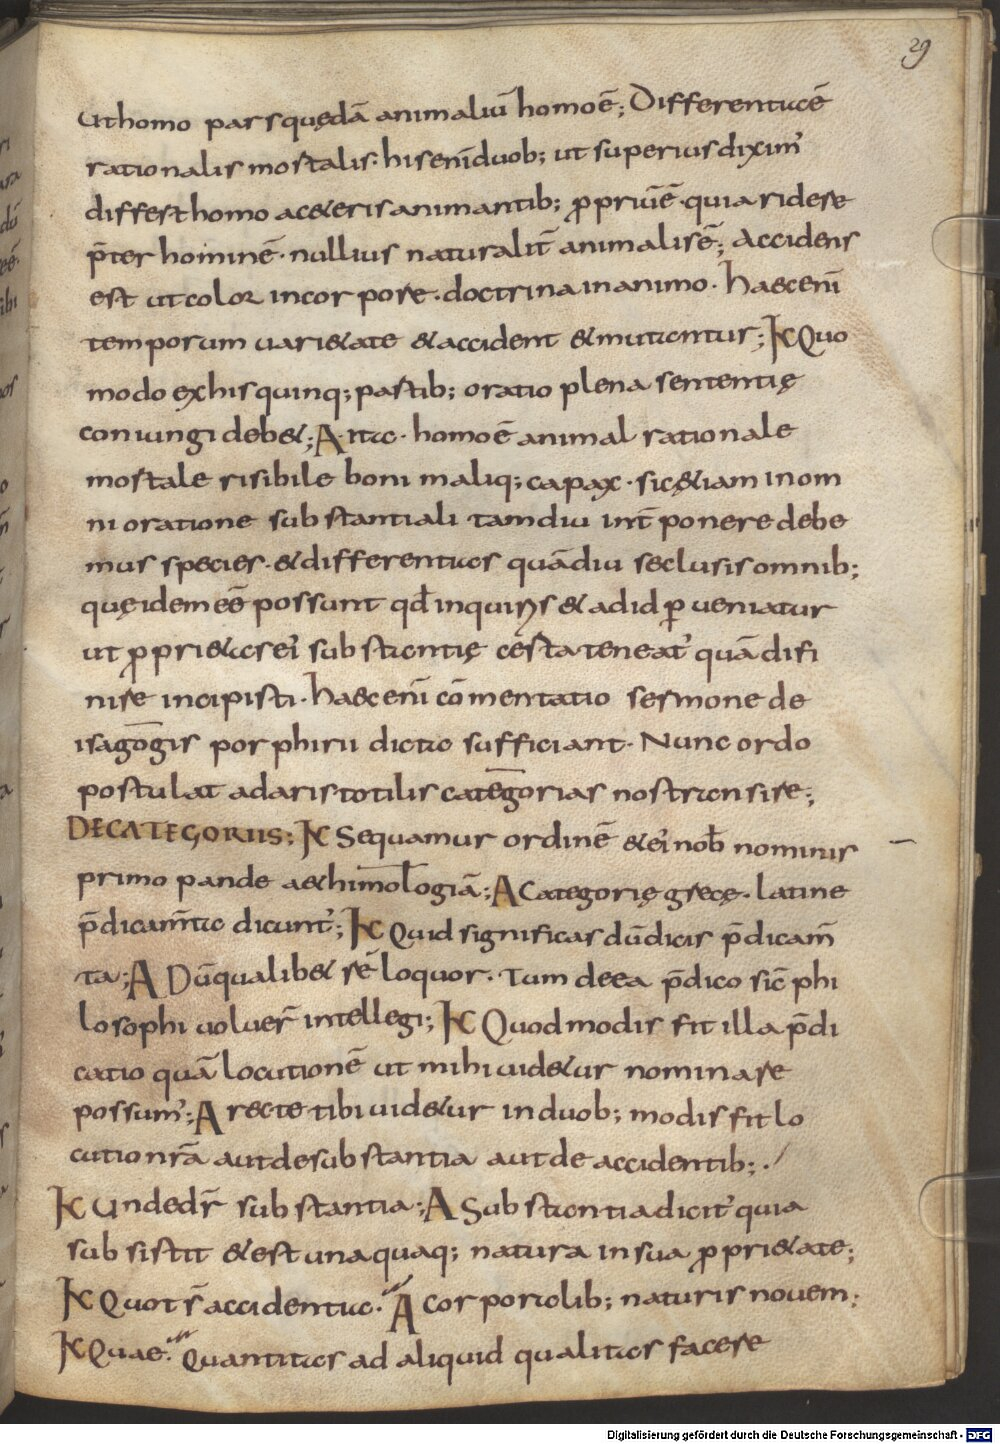 29
ut homo pars quędā animaliū homo ē; Differentia ē
rationalis mortalis. his enī duob; ut superius diximꝰ
differt homo a c&eris animantib; ꝓpriū ē. quia ridere
p̄ter hominē. nullius naturalit̄ animalis ē; Accidens
est ut color in corpore. doctrina in animo. haec enī
temporum uari&ate & accident & mutantur; K Quo
modo ex his quinq; partib; oratio plena sententię
coniungi deb&; A. ita. homo ē animal rationale
mortale risibile boni maliq; capax. sic &iam in om
ni oratione substantiali tamdiu int̄ponere debe
mus species. & differentias quādiu seclusis omnib;
quę idem eē possunt qđ inquiris & ad id ꝑueniatur
ut ꝓpri&as eiꝰ substantię c̄erta teneatꝰ quā difi
nire incipisti. haec enī cōmentatio sermone de
isagogis porphirii dicta sufficiant. Nunc ordo
postulat ad aristotilis categorias nos transire;
DE CATEGORIIS; K Sequamur ordinē & eiꝰ nob̄ nominis
primo pande a&himologiā; A Categorię grecę. latine
p̄dicam̄ta dicuntꝰ; K Quid significas dū dicis p̄dicam̄
ta; A Dū qualib& rē loquor. tum de ea p̄dico sic̄ phi
losophi uoluer̄ intellegi; K Quod modis fit illa p̄di
catio quā locutionē ut mihi uid&ur nominare
possumꝰ; A recte tibi uid&ur in duob; modis fit lo
cutio nr̄a aut de substantia aut de accidentib;.
K Unde dr̄ substantia; A Substantia dicitꝰ quia
subsistit & est unaquaq; natura in sua ꝓpri&ate;
K Quot s̄ accidentia. A Corporalib; naturis nouem;
K Quae. Quantitas ad aliquid qualitas facere
Digitalisierung gefördert durch die Deutsche Forschungsgemeinschaft - DFG